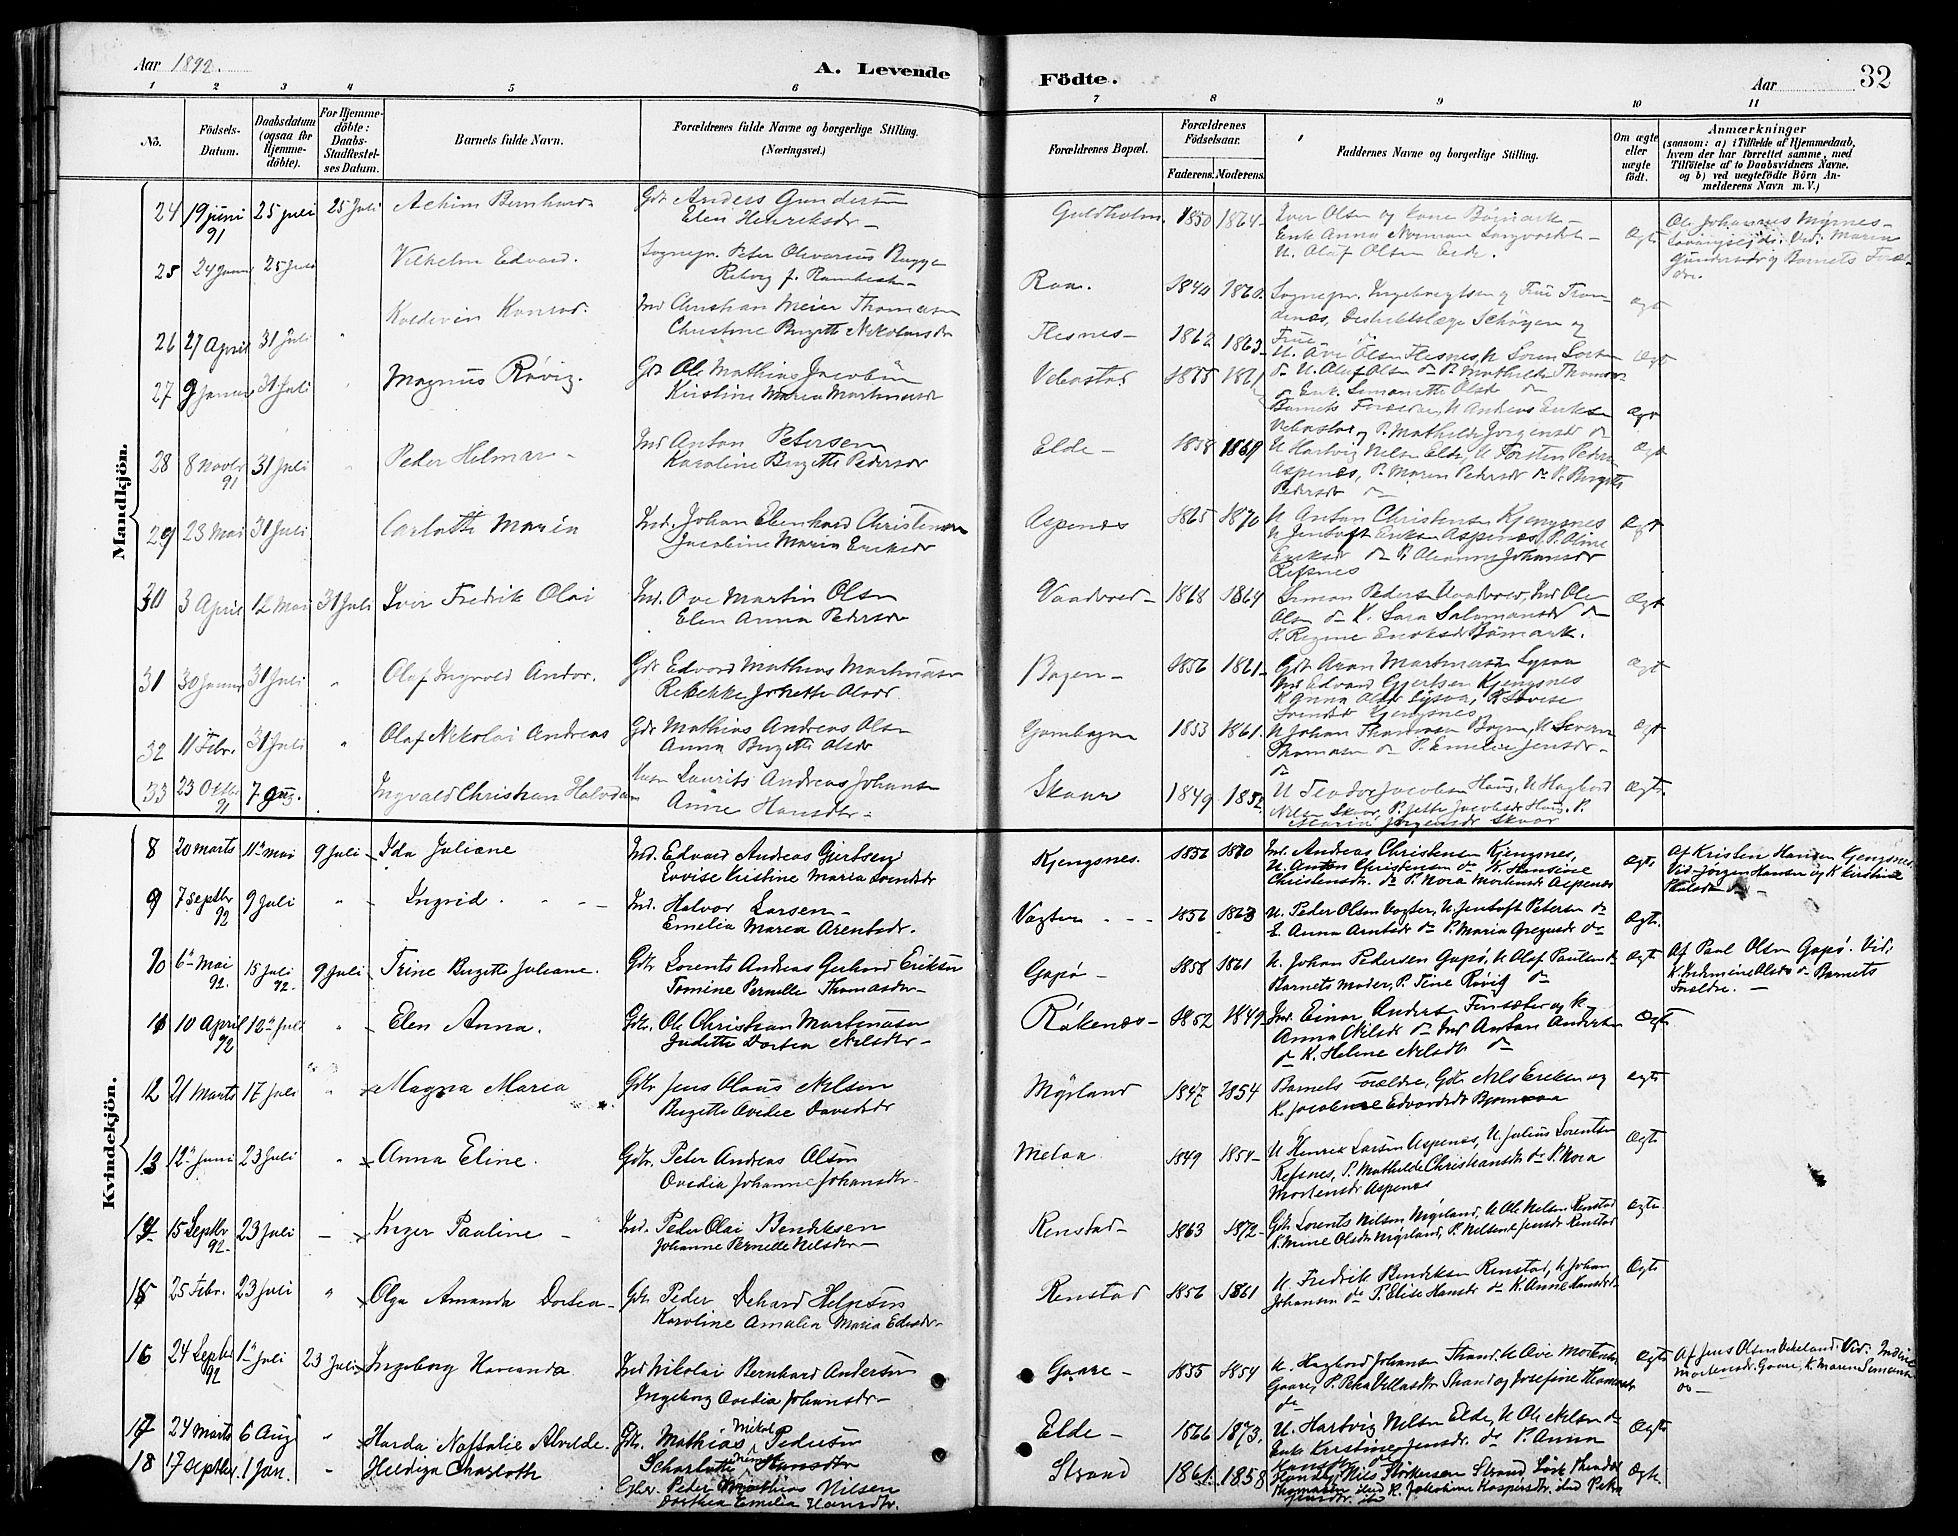 Aar 1892.
A. Levende
Födte.
Aar
32
1 2 3 4 5 6 7 8 9 10 11
No.
Födsels-
Datum.
Daabsdatum
(ogsaa for
Hjemme-
döbte).
For Hjemme-
döbte:
Daabs-
Stadfestel-
ses Datum.
Barnets fulde Navn.
Forældrenes fulde Navne og borgerlige Stilling.
(Næringsvei.)
Forældrenes Bopæl.
Forældrenes
Födselsaar.
Faderens. Moderens.
Faddernes Navne og borgerlige Stilling.
Om ægte
eller
uægte
födt.
Anmærkninger
(saasom: a) i Tilfælde af Hjemmedaab,
hvem der har forrettet samme, med
Tilföielse af to Daabsvidners Navne.
og b) ved uægtefödte Börn An-
melderens Navn m. V.)
Mandkjön.
24 19 juni 91 25 juli 25 Juli Achim Bernhard Gdr Anders Gundersen
Elen Henriksdr
Guldholm 1850 1864 Iver Olsen og Kone Börmark
Enk Anna Norman
U. Olaf Olsen Elde.
Ægte
Ole Johannes Myrnes
25 24 Januar 25 Juli Vilhelm Edvard. Sognepr. Peter Olivarius Bugge
Raa. 1840 1860 Sognepr. Ingebregtsen og Frue Tron-
denes, Distriktslæge Schöyen og
Frue
ægt
26 27 April 31 Juli Koldevin Konrad. Ind Christian Meier Thomassen
Christine Birgitte Nikolaisdr
Flesnes 1862 1863 U. Ove Olsen Flesnes
Ægt
27 9 Januar 31 Juli Magnus Rövig. Gdr Ole Mathias Jacobsen
Kirstine Maria Martinusdr
Vebostad 1855 1861
Barnets Forældre, U Andreas Eriksen
Vebostad og P. Mathilde Jörgensdr do
ægt
28 8 Novbr 91 31 Juli Peder Helmar Ind Anton Petersen
Karoline Birgitte Pedersdr
Elde 1858 1869 U Hartvig Nelsen Elde, U Torsten Peders
Aspenes, P. Maren Pedersdr do P. Birgitte
Pedersdr do
Ægt
29 23 Mai 31 Juli Carlotte Maria Ind. Johan Edenhard Christensen
Jacobine Maria Eriksdr
Aspenes 1865 1870 U Anton Christensen Kjengsnes
U Jentoft Eriksen Aspenes, P. Oline
Eriksdr do P. Oleanna Johansdr
Refsnes
Ægt
30 3 April 12 Mai 31 Juli Iver Fredrik Olai Ind. Ove Martin Olsen
Elen Anna Pedersdr
Vaadvoed 1868 1864 Simon Pedersen Vaadvoed, Ind Ole
Olsen do K. Sara Salamonsdr do
P. Regine Eriksdr Börnark.
Ægt
31 30 Januar 31 Juli Olaf Ingvald Andor. Gdr Edvard Mathias Martinussen
Rebekke Johette Olsdr
Bogen 1856 1861 Gdr Aron Martinussen Lysaa
Ind Edvard Gjertsen Kjengsnes
K Anna Olsdr Lysaa, K Lovise
Svendsdr Kjengsnes
Ægt
32 11 Febr. 31 Juli Olaf Nikolai Andreas Gdr Mathias Andreas Olsen
Anna Birgitte Olsdr
Gambogen 1853 1861. U Johan Thomassen Bogen, U Severin
Thomassen do P. Emelie Jensdr
do
Ægt
33 23 Oktbr 91 7 Aug. Ingvald Christian Halvdan Husm Laurits Andreas Johansen
Anne Hansdtr
Skaar 1849 1852 U Teodor Jacobsen Haug, U Hagbord
Nilsen Skar, P. Jette Jacobsdr Haug, P.
Maria Jörgensdr Skaar
Ægt.
Kvindekjön.
8 20 marts 11te mai 9 juli Ida Juliane Ind. Edvard Andreas Gjertsen
Lovise Kristine Maria Svendsdr
Kjengsnes. 1856 1860 Ind. Andreas Christensen Kjengsnes,
U. Anton Christensen do K. Hansine
Christensdr. do P. Nora Mortensdr Aspenes
Ægte
Af Kristen Hansen Kjengsnes
Vid. Jörgen Hansen og K Kirstine
9 7 Septbr 92 9 Juli Ingrid. Ind. Halvor Larsen
Emelia Marea Arentsdr.
Vagter 1856 1863 U. Peder Olsen Vagter, U. Jentoft Petersen do
E. Anna Arntsdr do P. Maria Gregusdr do
Ægt.
10 6te Mai 92. 15 juli 92. 9 Juli Trine Birgitte Juliane. Gdr Lorents Andreas Gerhard Eriksen
Tomine Pernille Thomasdr
Gapö 1858 1861 U. Johan Pedersen Gapö, U Olaf Paulsen do
Barnets moder, P. Tine Rövig do
Ægt
Af Paul Olsen Gapö. Vid:
K. Indemine Olsdr do Barnets
Forældre.
11 10 April 92 12te Juli Elen Anna. Gdr. Ole Christian Martinussen
Juditte Dortea Nelsdtr
Rökenes 1852 1849 Ind. Einar Anders Finsæter og K.
Anna Nilsdr do Ind Anton Andersen
do K. Helene Nelsdtr do
Ægt
12 21 Marts 17 Juli Magna Maria Gdr Jens Olaus Nelsen
Birgitte Ovedie Davidsdr
Mýrland 1847 1854 Barnets Forældre, Gdr Nils Eriksen og
K. Jacobine Edvardsdr Bjornraa
Ægt
13 12te Juni 23 Juli Anna Eline. Gdr. Peter Andreas Olsen
Ovedia Johanne Johansdtr
Melaa 1849 1854 U Henrik Larsen Aspenes, U. Julius Lorentsen
Refsnes, P. Mathilde Christiansdr do P. Nora
Mortensdr Aspenes
Ægt
14 15 Septbr 92 23 Juli Inger Pauline Ind. Peder Olai Bendiksen
Johanne Pernille Nilsdtr
Renstad 1863 1872 Gdr Lorents Nilsen Mýrland, U Ole Nelsen Renstad
K. Mine Olsdr Mýrland, P. Nelsine Jensdr Renstad
Ægte
15 25 Febr. 23 Juli Olga Amanda Dortea Gdr Peder Dehard Helgesen
Karoline Amalia Maria Edisdr
Renstad 1856 1861 U. Fredrik Bendiksen Renstad, U Johan
Johansen do P. Elise Hansdr do K. Anne Hansdr do
Ægt
16 24 Septbr 92 1te Juli 23 Juli Ingeborg Havanda Ind Nikolai Bernhard Andersen
Ingeborg Ovedia Johansdr
Gaare 1855 1854 U. Hagbord Johansen Strand, U Ove Mortens
Gaare, P. Petra Strand og Josefine Thomasdr
do
Ægte
Af Jens Olsen Vekeland. Vid.
Mortensdr. Gaare, K. Maren Simonsdr
do
17 24 Marts 6 Aug Harda Naftalie Alvilde. Gdr. Mathias Nikolai Pedersen
Scharlotte Hansdtr
Elde 1866 1873. U. Hartvig Nelsen Elde, U Ole Nelsen do
Enke Kristine Jensdr. do P. Anna
Hansdtr do
Ægt
18 17 Septbr. 1 Jan. Heldiga Charloth Gbr. Peder Mathias Nilsen
Dorthea Emelia Hansdtr.
Strand 1861. 1858 Nils Störkersen Strand,
Thomassen ibid K. Jakobine Kaspersdr. ibid Petra
Jensdtr. ib
Ægte.